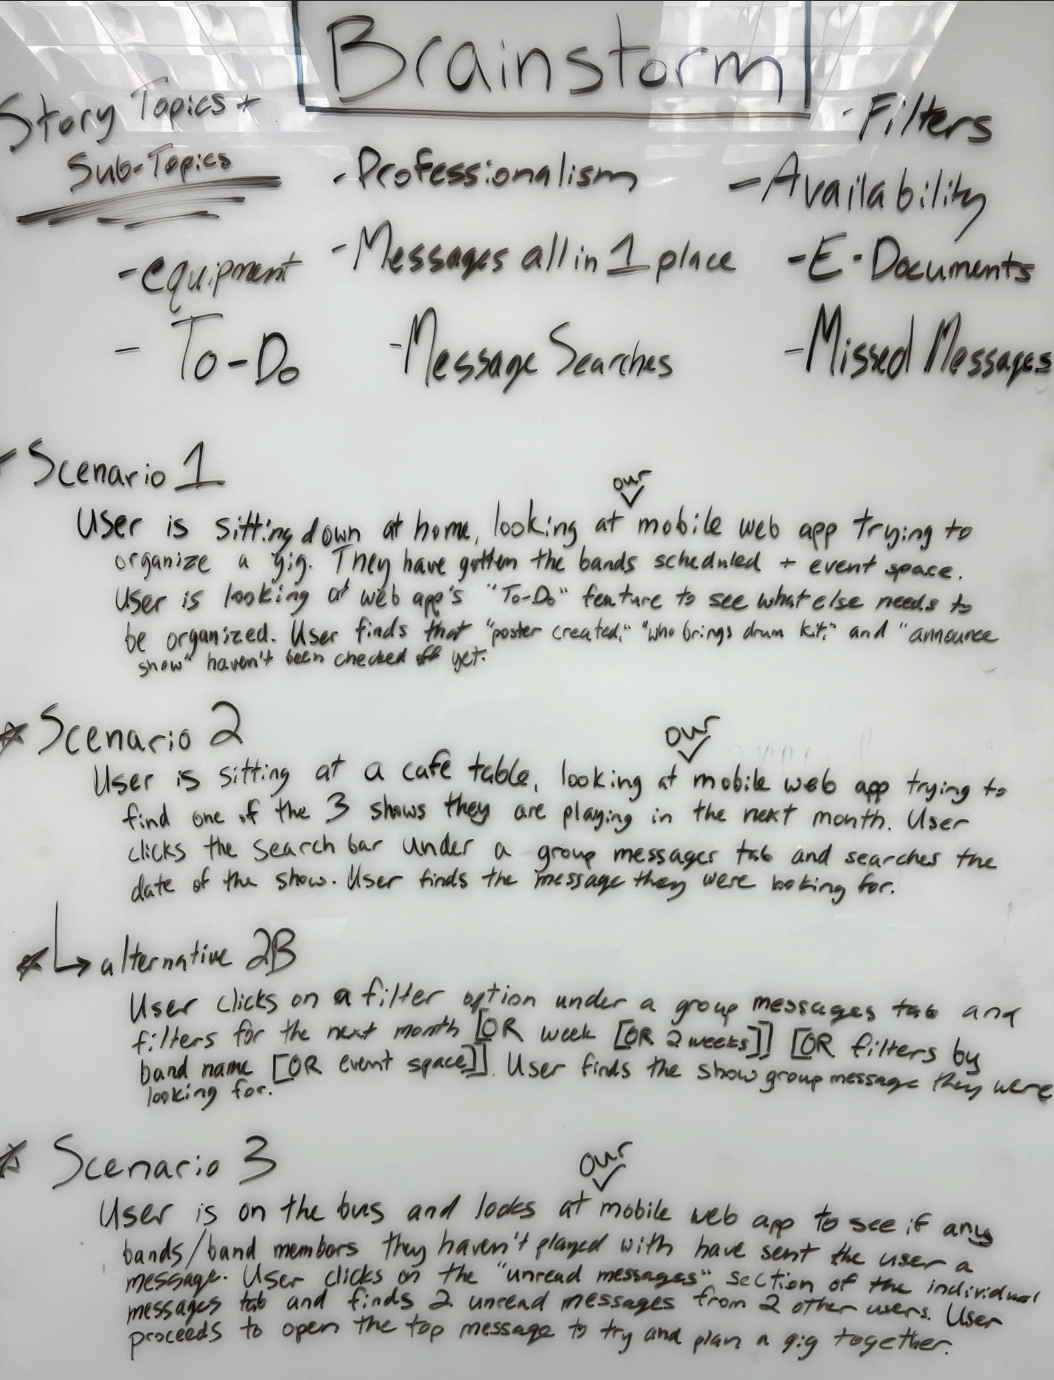 Brainstorm
Story Topics +
Sub-Topics
- equipment
- To-Do
- Professionalism
- Messages all in 1 place
- Message Searches
- Filters
- Availability
- E-Documents
- Missed Messages
Scenario 1
our
User is sitting down at home, looking at mobile web app trying to
organize a gig. They have gotten the bands scheduled + event space.
User is looking at web app's "To-Do" feature to see what else needs to
be organized. User finds that "poster created," "who brings drum kit," and "announce
show" haven't been checked off yet.
Scenario 2
our
User is sitting at a cafe table, looking at mobile web app trying to
find one of the 3 shows they are playing in the next month. User
clicks the search bar under a group messages tab and searches the
date of the show. User finds the message they were looking for.
alternative 2B
User clicks on a filter option under a group messages tab and
filters for the next month [OR week [OR 2 weeks]] [OR filters by
band name [OR event space]]. User finds the show group message they were
looking for.
Scenario 3
our
User is on the bus and looks at mobile web app to see if any
bands/band members they haven't played with have sent the user a
message. User clicks on the "unread messages" section of the individual
messages tab and finds 2 unread messages from 2 other users. User
proceeds to open the top message to try and plan a gig together.